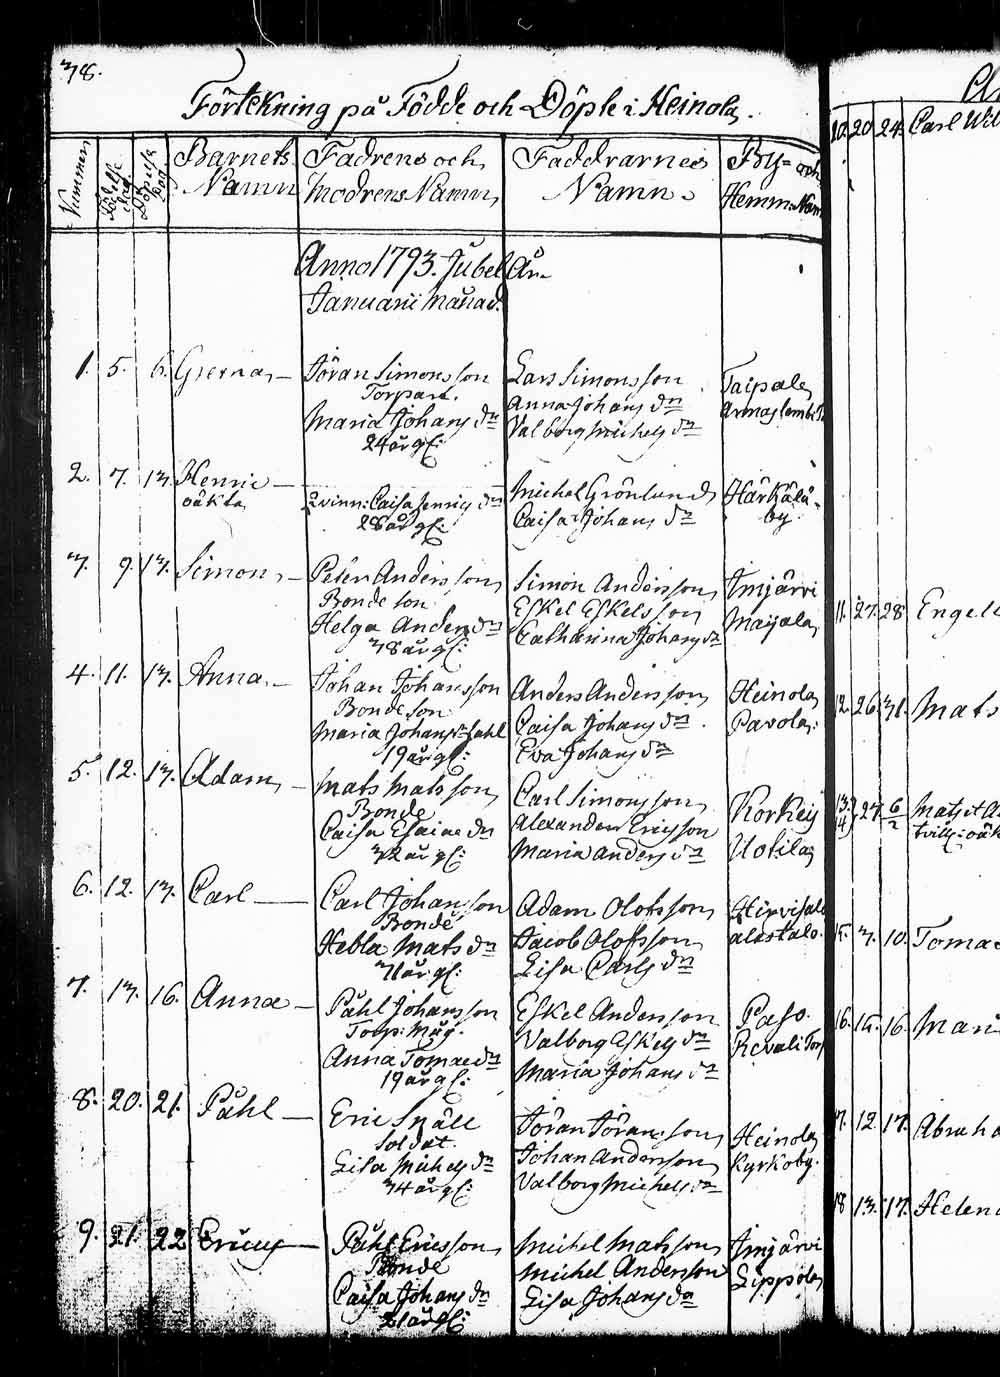 38.
Förtekning på Födde och Döple i Heinola.
Nummer
Födelse dag
Döpelse dag
Barnets Namn
Fadrens och Modrens Namn
Faddrarnes Namn.
By- och Hemm: Namn
Anno 1793. Jubel År.
Januarii Månad.
1. 5. 6.
Göran Simonsson
Torpare.
Maria Johans dn
24 år gl:
Lars Simonsson
Anna Johans dn
Valborg Michels dn
Taipale,
2. 7. 13. Henric
oäkta
Qvinn: Caisa Henrics dn
28 år gl:
Michel Grönlund
Caisa Johans dn
Härkälä-
by.
3. 9. 13. Simon,
Peter Andersson,
Bonde son
Helga Anders dn
38 år gl:
Simon Andersson,
Eskel Eskelsson
Catharina Johans dn
Imjärvi
Maijala,
4. 11. 13. Anna.
Johan Johansson
Bonde son
Maria Johans dn
19 år gl:
Anders Andersson,
Caisa Johans dn
Eva Johans dn
Heinola,
Pavola:
5. 12. 13. Adam,
Mats Matsson,
Bonde
Caisa Esaiae dn
32 år gl:
Carl Simonsson,
Alexander Ericsson
Maria Anders dn
Korkey
Uotila,
6. 12. 13. Carl
Carl Johansson
Bonde
Hebla Mats dn
31 år gl:
Adam Olofsson,
Jacob Olofsson,
Lisa Carls dn
Hirvisal
alastalo.
7. 13. 16. Anna
Påhl Johansson
Torp: Måg.
Anna Tomae dn
19 år gl:
Eskel Andersson
Valborg Eskels dn
Maria Johans dn
Paso.
Revali Torp
8. 20. 21. Påhl
Eric Snäll
Soldat.
Lisa Michels dn
34 år gl:
Göran Göransson,
Johan Andersson,
Valborg Michels dn
Heinola,
Kyrkoby.
9. 21. 22 Ericus
Påhl Ericsson,
Bonde
Caisa Johans dn
21 år gl:
Michel Matsson,
Michel Andersson
Lisa Johans dn
Imjärvi
Lippola,
10. 20. 24. Carl Wil
11. 27. 28. Engel
12. 26. 31. Mats
13. 14 } 27. 6/2 Mats et A
tvill: oäk
15. 3. 10. Tomas
16. 15. 16. Mari
17. 12. 17. Abraha
18 13. 17. Helena